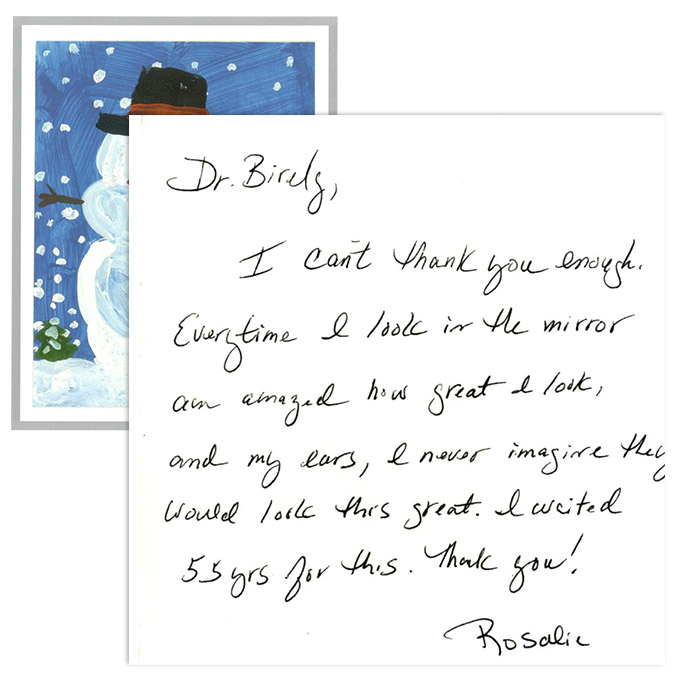 Dr. Birely,
I can't thank you enough.
Everytime I look in the mirror
am amazed how great I look,
and my ears, I never imagine they
would look this great. I waited
55 yrs for this. Thank you!
Rosalie